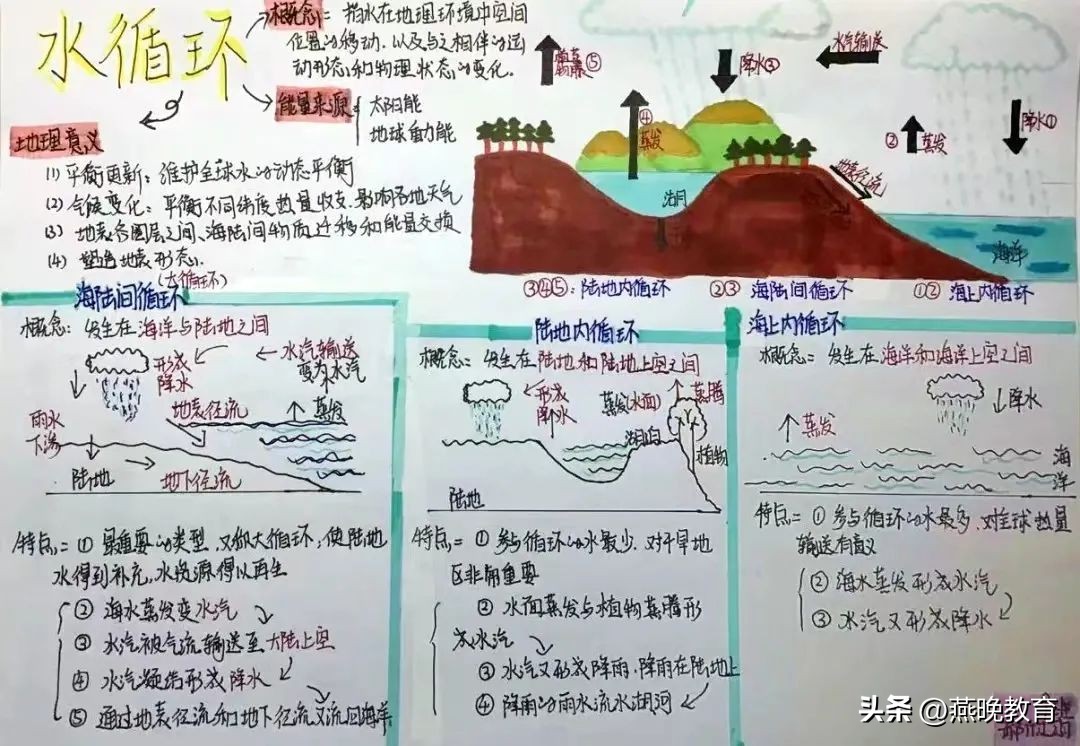 水循环
概念：指水在地理环境中空间
位置的移动，以及与之相伴的运
动形态和物理状态的变化。
能量来源
太阳能
地球重力能
地理意义
(1) 平衡更新：维护全球水的动态平衡
(2) 气候变化：平衡不同纬度热量收支，影响各地天气
(3) 地表各圈层之间、海陆间物质迁移和能量交换
(4) 塑造地表形态
⑤
降水③
水汽输送
④
蒸发
②
蒸发
降水①
地表径流
湖泊
海洋
③④⑤：陆地内循环
②③ 海陆间循环
①② 海上内循环
(大循环)
海陆间循环
概念：发生在海洋与陆地之间
形成
降水
水汽输送
变为水汽
雨水
下渗
地表径流
蒸发
陆地
地下径流
特点：① 最重要的类型，又称大循环；使陆地
水得到补充，水资源得以再生
② 海水蒸发变水汽
③ 水汽被气流输送至大陆上空
④ 水汽凝结形成降水
⑤ 通过地表径流和地下径流又流回海洋
陆地内循环
概念：发生在陆地和陆地上空之间
形成
降水
蒸发(水面)
蒸腾
湖泊
植物
陆地
特点：① 参与循环的水最少，对干旱地
区非常重要
② 水面蒸发与植物蒸腾形
成水汽
③ 水汽又形成降雨，降雨在陆地上
④ 降雨的雨水流水湖河
海上内循环
概念：发生在海洋和海洋上空之间
降水
蒸发
海
洋
特点：① 参与循环的水最多，对全球热量
输送有意义
② 海水蒸发形成水汽
③ 水汽又形成降水
头条 @燕晚教育